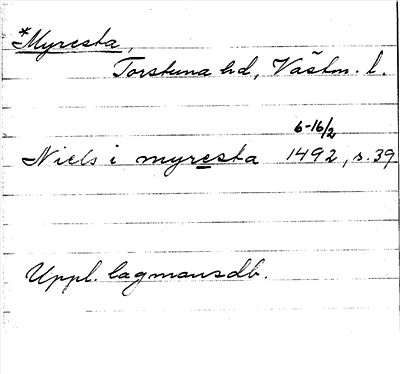 *Myresta,
Torstuna hd, Västm. l.
6-16/2
Niels i myresta 1492, s. 39
Uppl. lagmansdb.